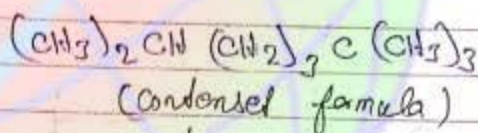 (CH3)2 CH (CH2)3 C (CH3)3
(Condensel formula)